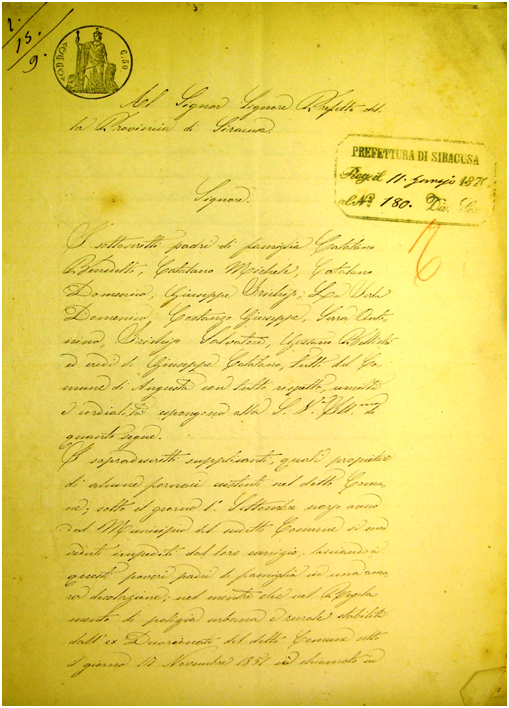 1.
15.
9.
C. 50
Al Signor Signore Prefetto del-
la Provincia di Siracusa
PREFETTURA DI SIRACUSA
il 11.
al N.° 180. Div.
Signore.
I sottoscritti padri di famiglia Catalano
Benedetto, Catalano Michele, Catalano
Domenico, Giuseppe La
Domenico, Costanzo Giuseppe, Sara Anto-
nino, Salvatore,
ed eredi di Giuseppe Catalano, tutti del Co-
mune di Augusta con tutto rispetto, umiltà
e cordialità espongono alla S. V. Ill.ma
quanto segue.
I sopradescritti supplicanti, quali proprietari
di alcune fornaci esistenti nel detto Comu-
ne; sotto il giorno 1.° Settembre anno
dal Municipio del Comune si sono
veduti impediti dal loro esercizio, lasciando
questi poveri padri di famiglia in una ama-
ra desolazione; nel mentre che nel Regola-
mento di polizia urbana e rurale stabilito
dall'ex Decurionato del detto Comune sotto
il giorno 12 Novembre 1851 ed